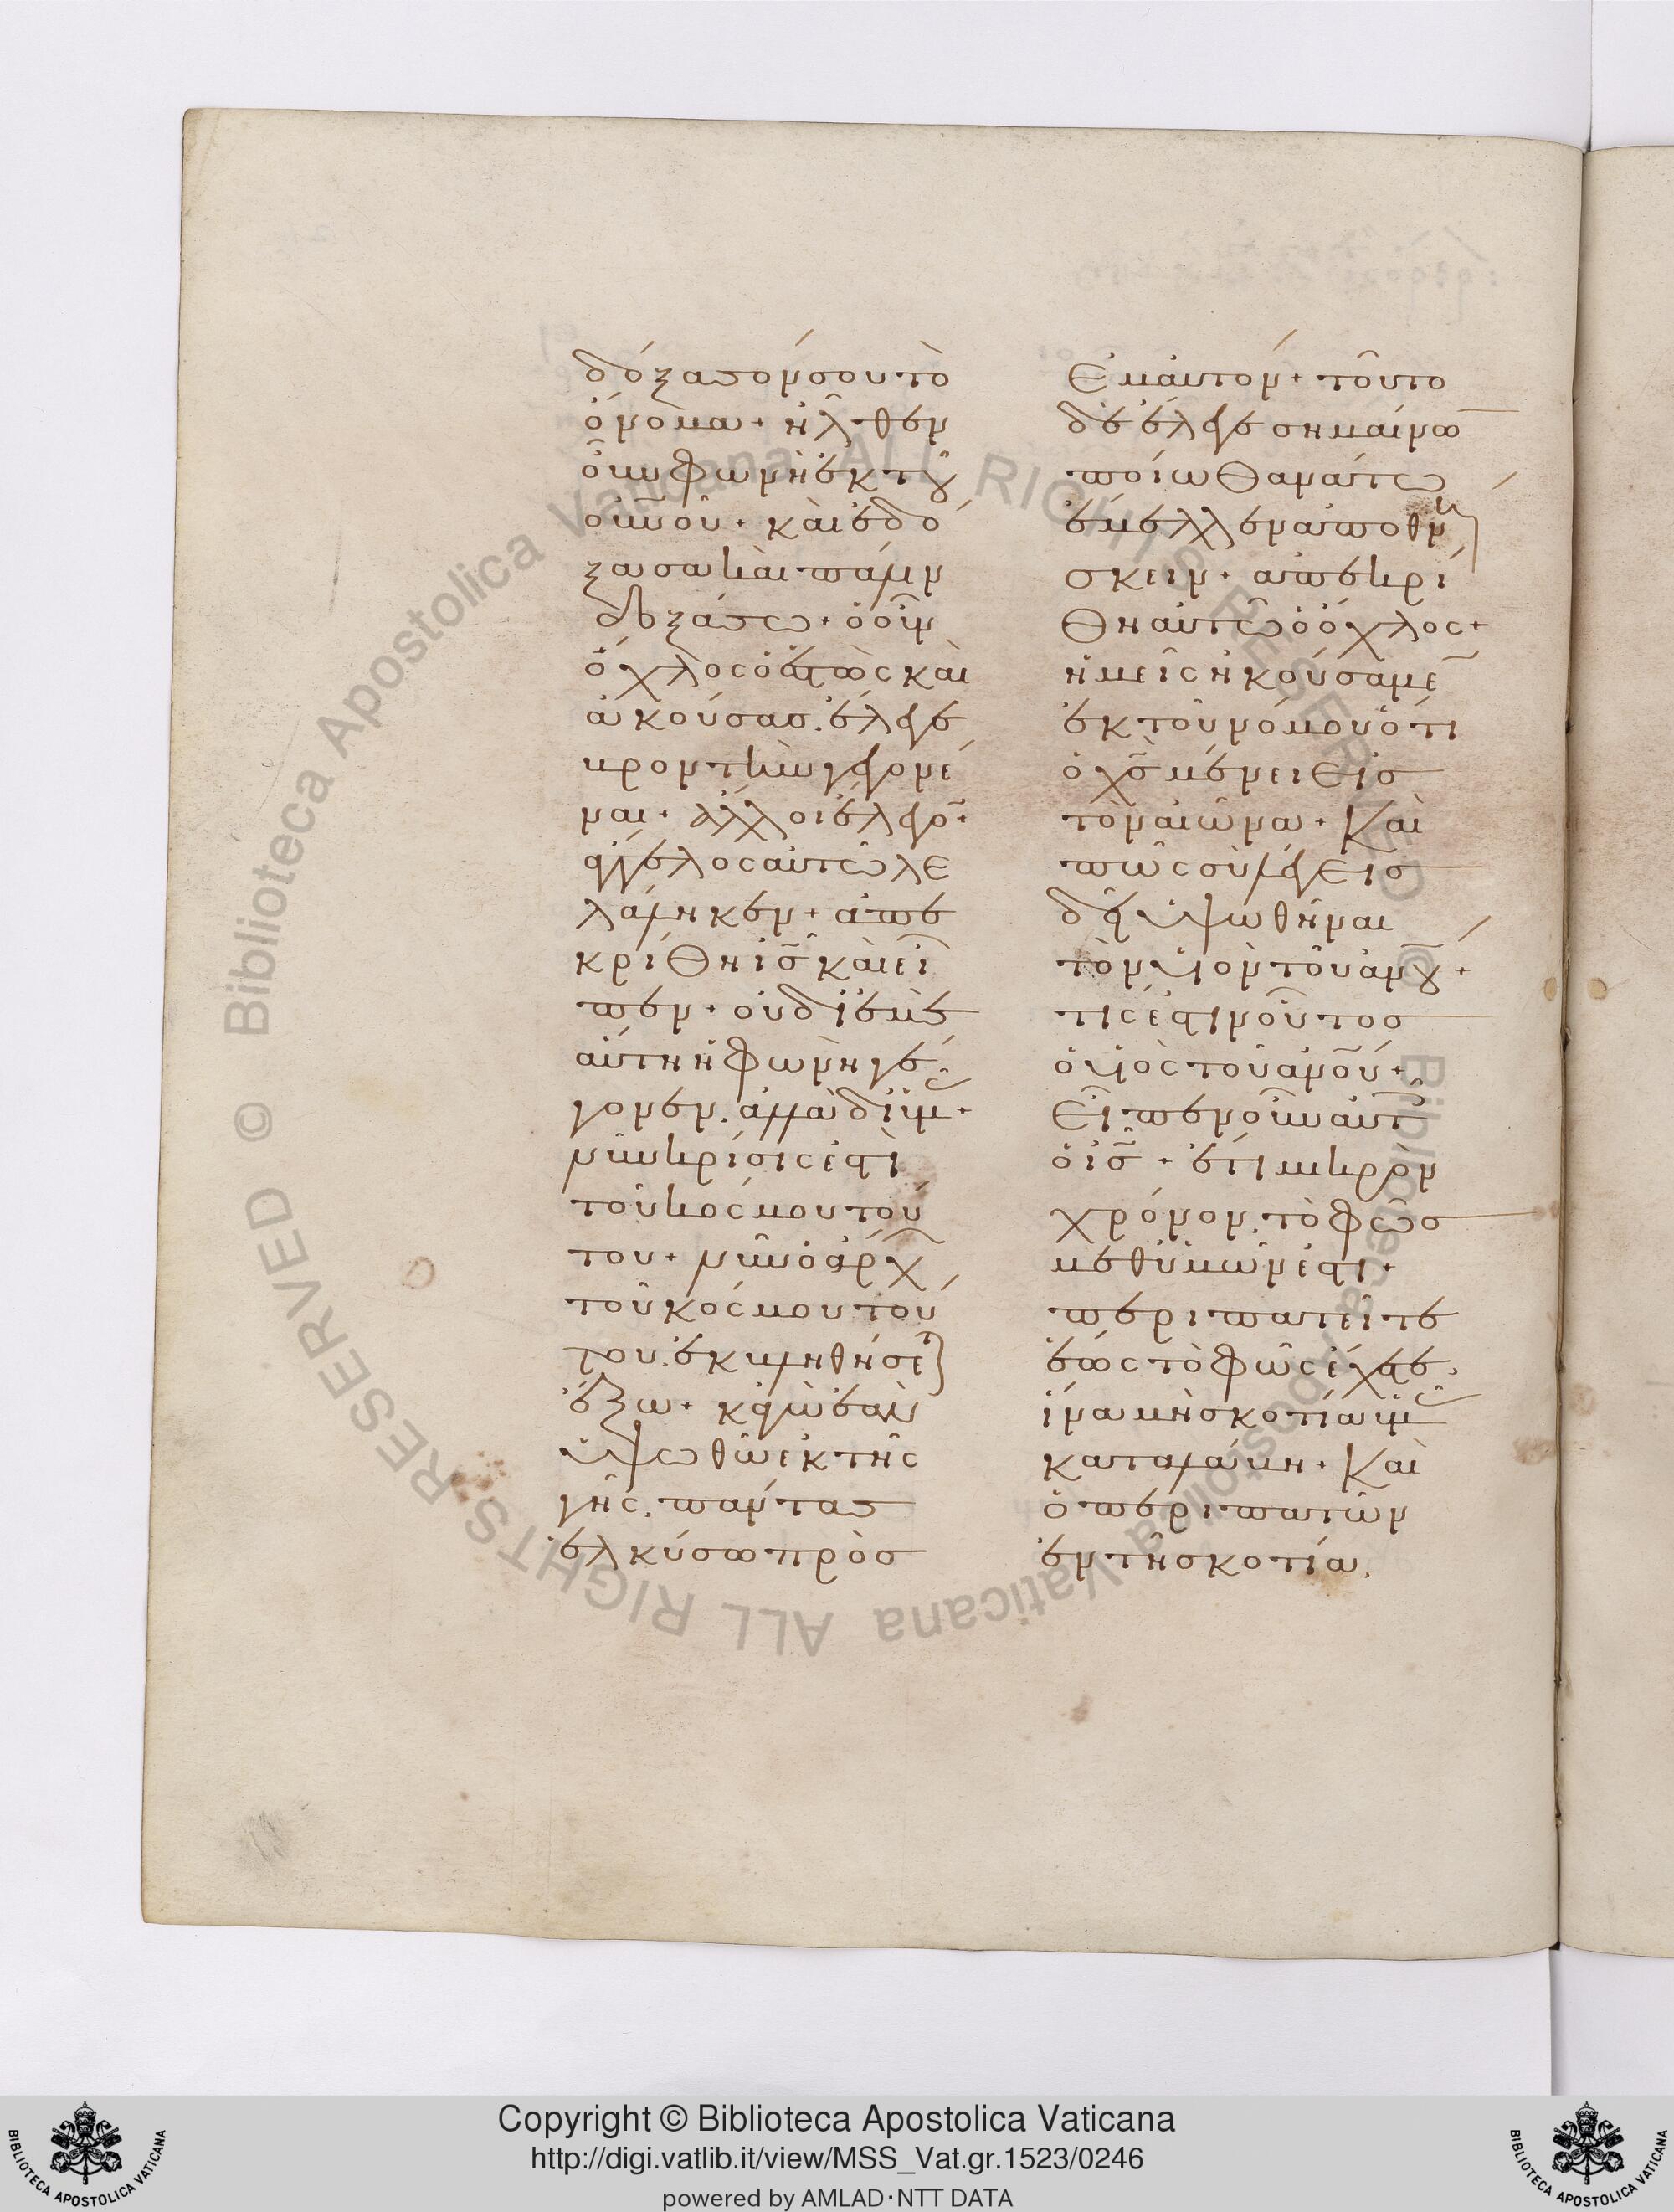 δόξασόν σου τὸ
ὄνομα + ἦλθεν
οὖν φωνὴ ἐκ τοῦ
οὐνοῦ + καὶ ἐδό
ξασα καὶ πάλιν
δοξάσω + ὁ οὖν
ὄχλος ὁ ἑστὼς καὶ
ἀκούσας. ἔλεγε
βροντὴν γεγονέ
ναι + ἄλλοι ἔλεγον +
ἄγγελος αὐτῶ λε
λάληκεν + ἀπε
κρίθη ις καὶ εἶ
πεν + οὐ δι ἐμὲ
αὕτη ἡ φωνὴ γέ
γονεν. ἀλλὰ δι ὑμᾶς +
νῦν κρίσις ἐστὶ
τοῦ κόσμου τού
του + νῦν ὁ ἄρχων
τοῦ κόσμου τού
του. ἐκβληθήσεται
ἔξω + κἀγὼ ἐὰν
ὑψωθῶ ἐκ τῆς
γῆς. πάντας
ἑλκύσω πρὸς
Ἐμαυτόν + τοῦτο
δὲ ἔλεγε σημαίνων
ποίω Θανάτω
ἔμελλεν ἀποθνή
σκειν + ἀπεκρί
Θη αὐτῶ ὁ ὄχλος +
ἡμεῖς ἠκούσαμεν
ἐκ τοῦ νόμου ὅτι
ὁ χς μένει Εἰς
τὸν αἰῶνα + Καὶ
πῶς σὺ λέγΕις
δεῖ ὑψωθῆναι
τὸν υἱὸν τοῦ ἀνου +
τίς ἐστιν οὗτος
ὁ υἱὸς τοῦ ἀνου +
Εἶπεν οὖν αὐτοῖς
ὁ ις + ἔτι μικρὸν
χρόνον. τὸ φῶς
μεθ ὑμῶν ἐστι +
περιπατεῖτε
ἕως τὸ φῶς ἔχετε.
ἵνα μὴ σκοτία ὑμᾶς
καταλάβη + Καὶ
ὁ περιπατῶν
ἐν τῆ σκοτία.
Copyright © Biblioteca Apostolica Vaticana
http://digi.vatlib.it/view/MSS_Vat.gr.1523/0246
powered by AMLAD·NTT DATA
BIBLIOTECA APOSTOLICA VATICANA
BIBLIOTECA APOSTOLICA VATICANA
© Biblioteca Apostolica Vaticana ALL RIGHTS RESERVED © Biblioteca Apostolica Vaticana ALL RIGHTS RESERVED